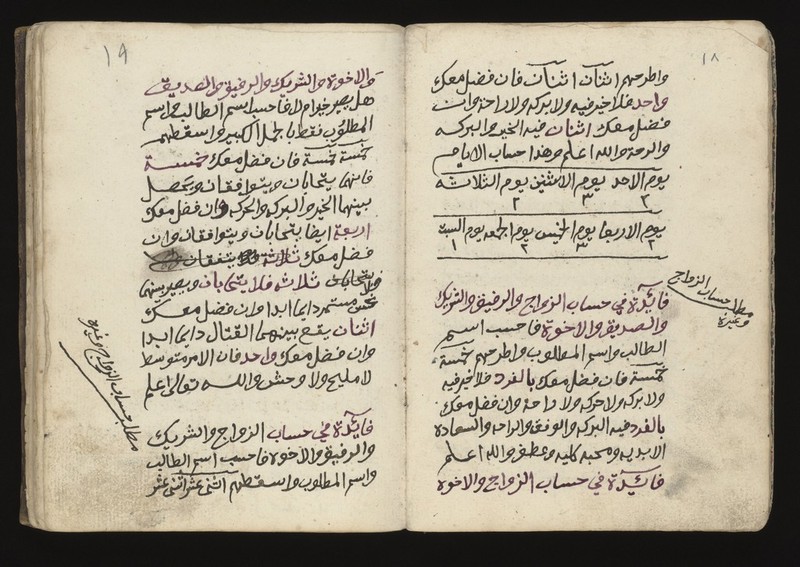 ١٨
واطرحهم اثنان اثنان فان فضل معك
واحد فلا خير فيه ولا بركه ولا راحة وان
فضل معك اثنان فيه الخير والبركه
والرحة والله اعلم وهذا حساب الايام
يوم الاحد يوم الاثنين يوم الثلاثه
٢ ٣ ٢
يوم الاربعا يوم الخميس يوم الجمعه يوم السبت
٢ ٣ ٢ ١
فائدة في حساب الزواج والرفيق والشريك
والصديق والاخوة فاحسب اسم
الطالب واسم المطلوب واطرحهم خمسة
خمسة فان فضل معك بالفرد فلا خير فيه
ولا بركه ولا حركه ولا راحة وان فضل معك
بالفرد فيه البركه والوفق والراحه والسعادة
الابديه ومحبه كليه وعطف والله اعلم
فائدة في حساب الزواج والاخوة
مطلب حساب الزواج
وغيره
١٩
والاخوة والشريك والرفيق والصديق
هل يصير خيرام لا فاحسب اسم الطالب واسم
المطلوب فقط بالجمل الكبير واسقطهم
خمسة خمسة فان فضل معك خمسة
فانهما يتحابان ويتوافقان ويحصل
بينهما الخير والبركه والحركه وان فضل معك
اربعة ايضا يتحابان ويتوافقان وان
فضل معك ثلاثة يتفقان
ولا يتحابان ثلاثه فلا يتحابان ويصير بينهما
مستمر دايما ابدا وان فضل معك
اثنان يقع بينهما القتال دايما ابدا
وان فضل معك واحد فان الامر متوسط
لا مليح ولا وحش والله تعالى اعلم
فائدة في حساب الزواج والشريك
والرفيق والاخوة فاحسب اسم الطالب
واسم المطلوب واسقطهم اثنى عشر اثنى عشر
مطلب حساب الزواج وغيره